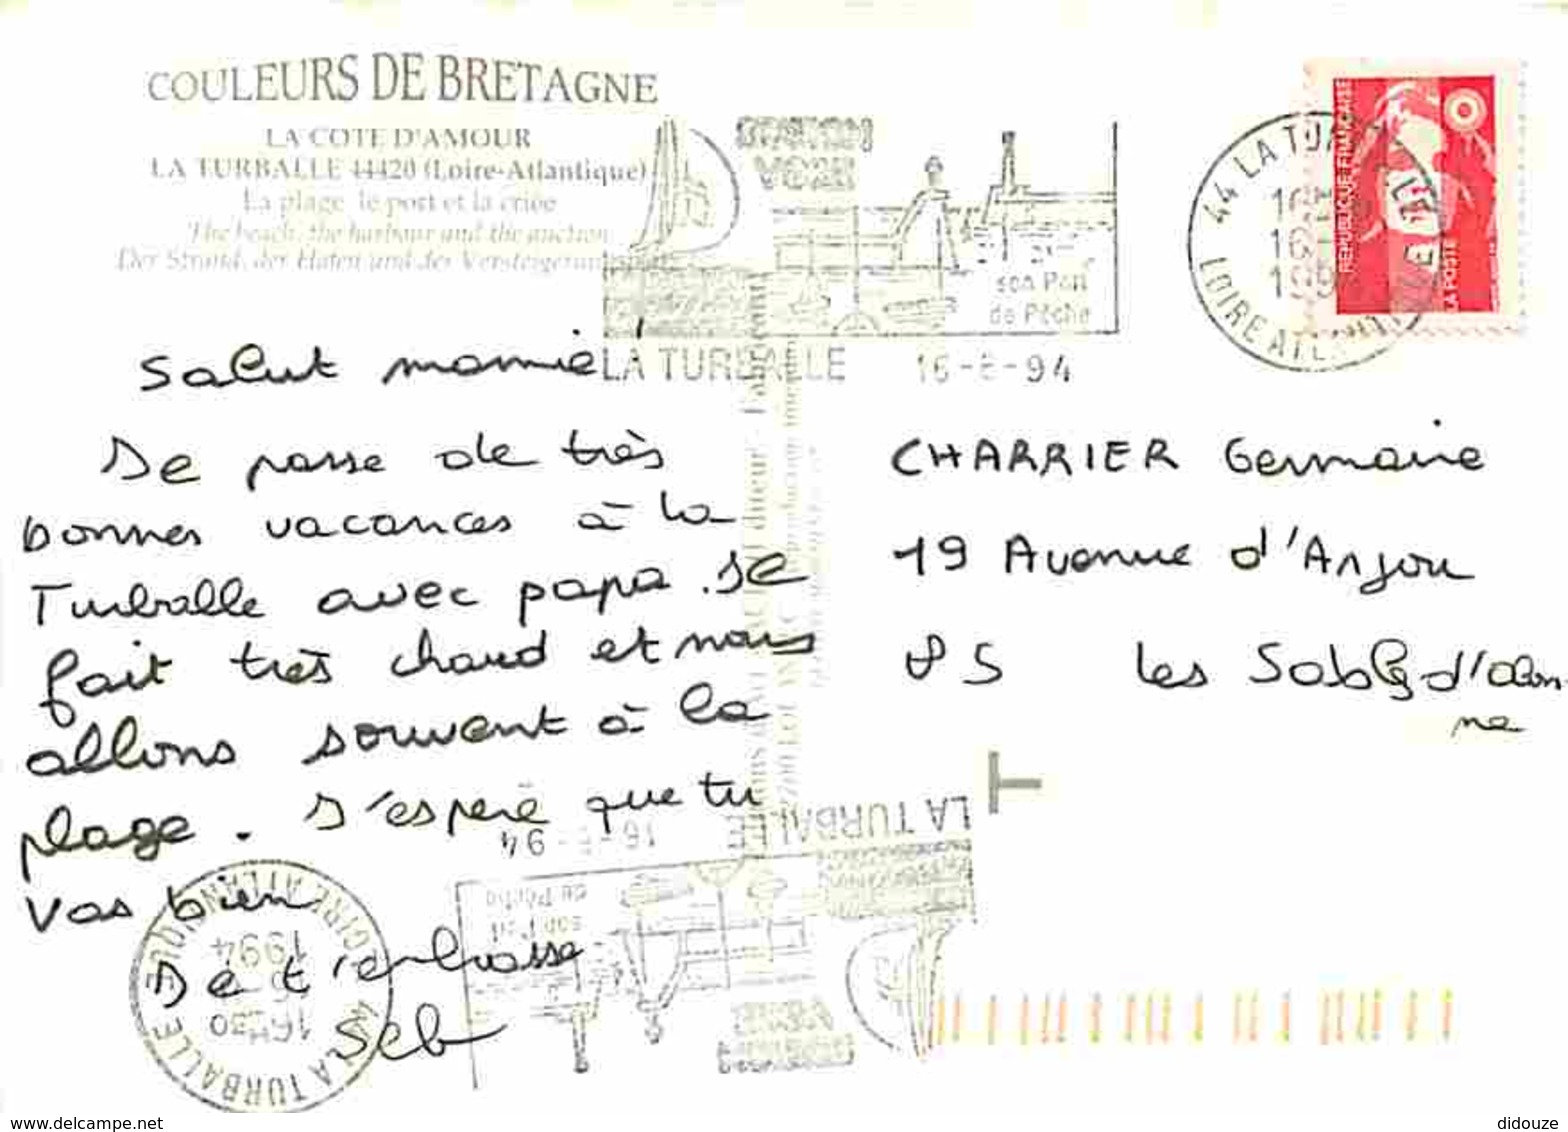 COULEURS DE BRETAGNE
LA COTE D'AMOUR
LA TURBALLE 44420 (Loire-Atlantique)
La plage le port et la criée
The beach, the harbour and the auction
Der Strand, der Hafen und der
STATION
VOILE
son Port
de Pêche
LA TURBALLE 16-8-94
44 LA TURBALLE
LOIRE ATLANTIQUE
REPUBLIQUE FRANÇAISE
LA POSTE
Salut mamie
Je passe de très
bonnes vacances à la
Turballe avec papa. Je
fait très chaud et nous
allons souvent à la
plage. J'espere que tu
vas bien
Je t'embrasse
Seb
CHARRIER Germaine
19 Avenue d'Anjou
85 Les Sables-d'olon-
ne
T
LA TURBALLE 16-8-94
son Port
de Pêche
STATION
VOILE
44 LA TURBALLE
16H30
1994
LOIRE ATLANTIQUE
www.delcampe.net
didouze